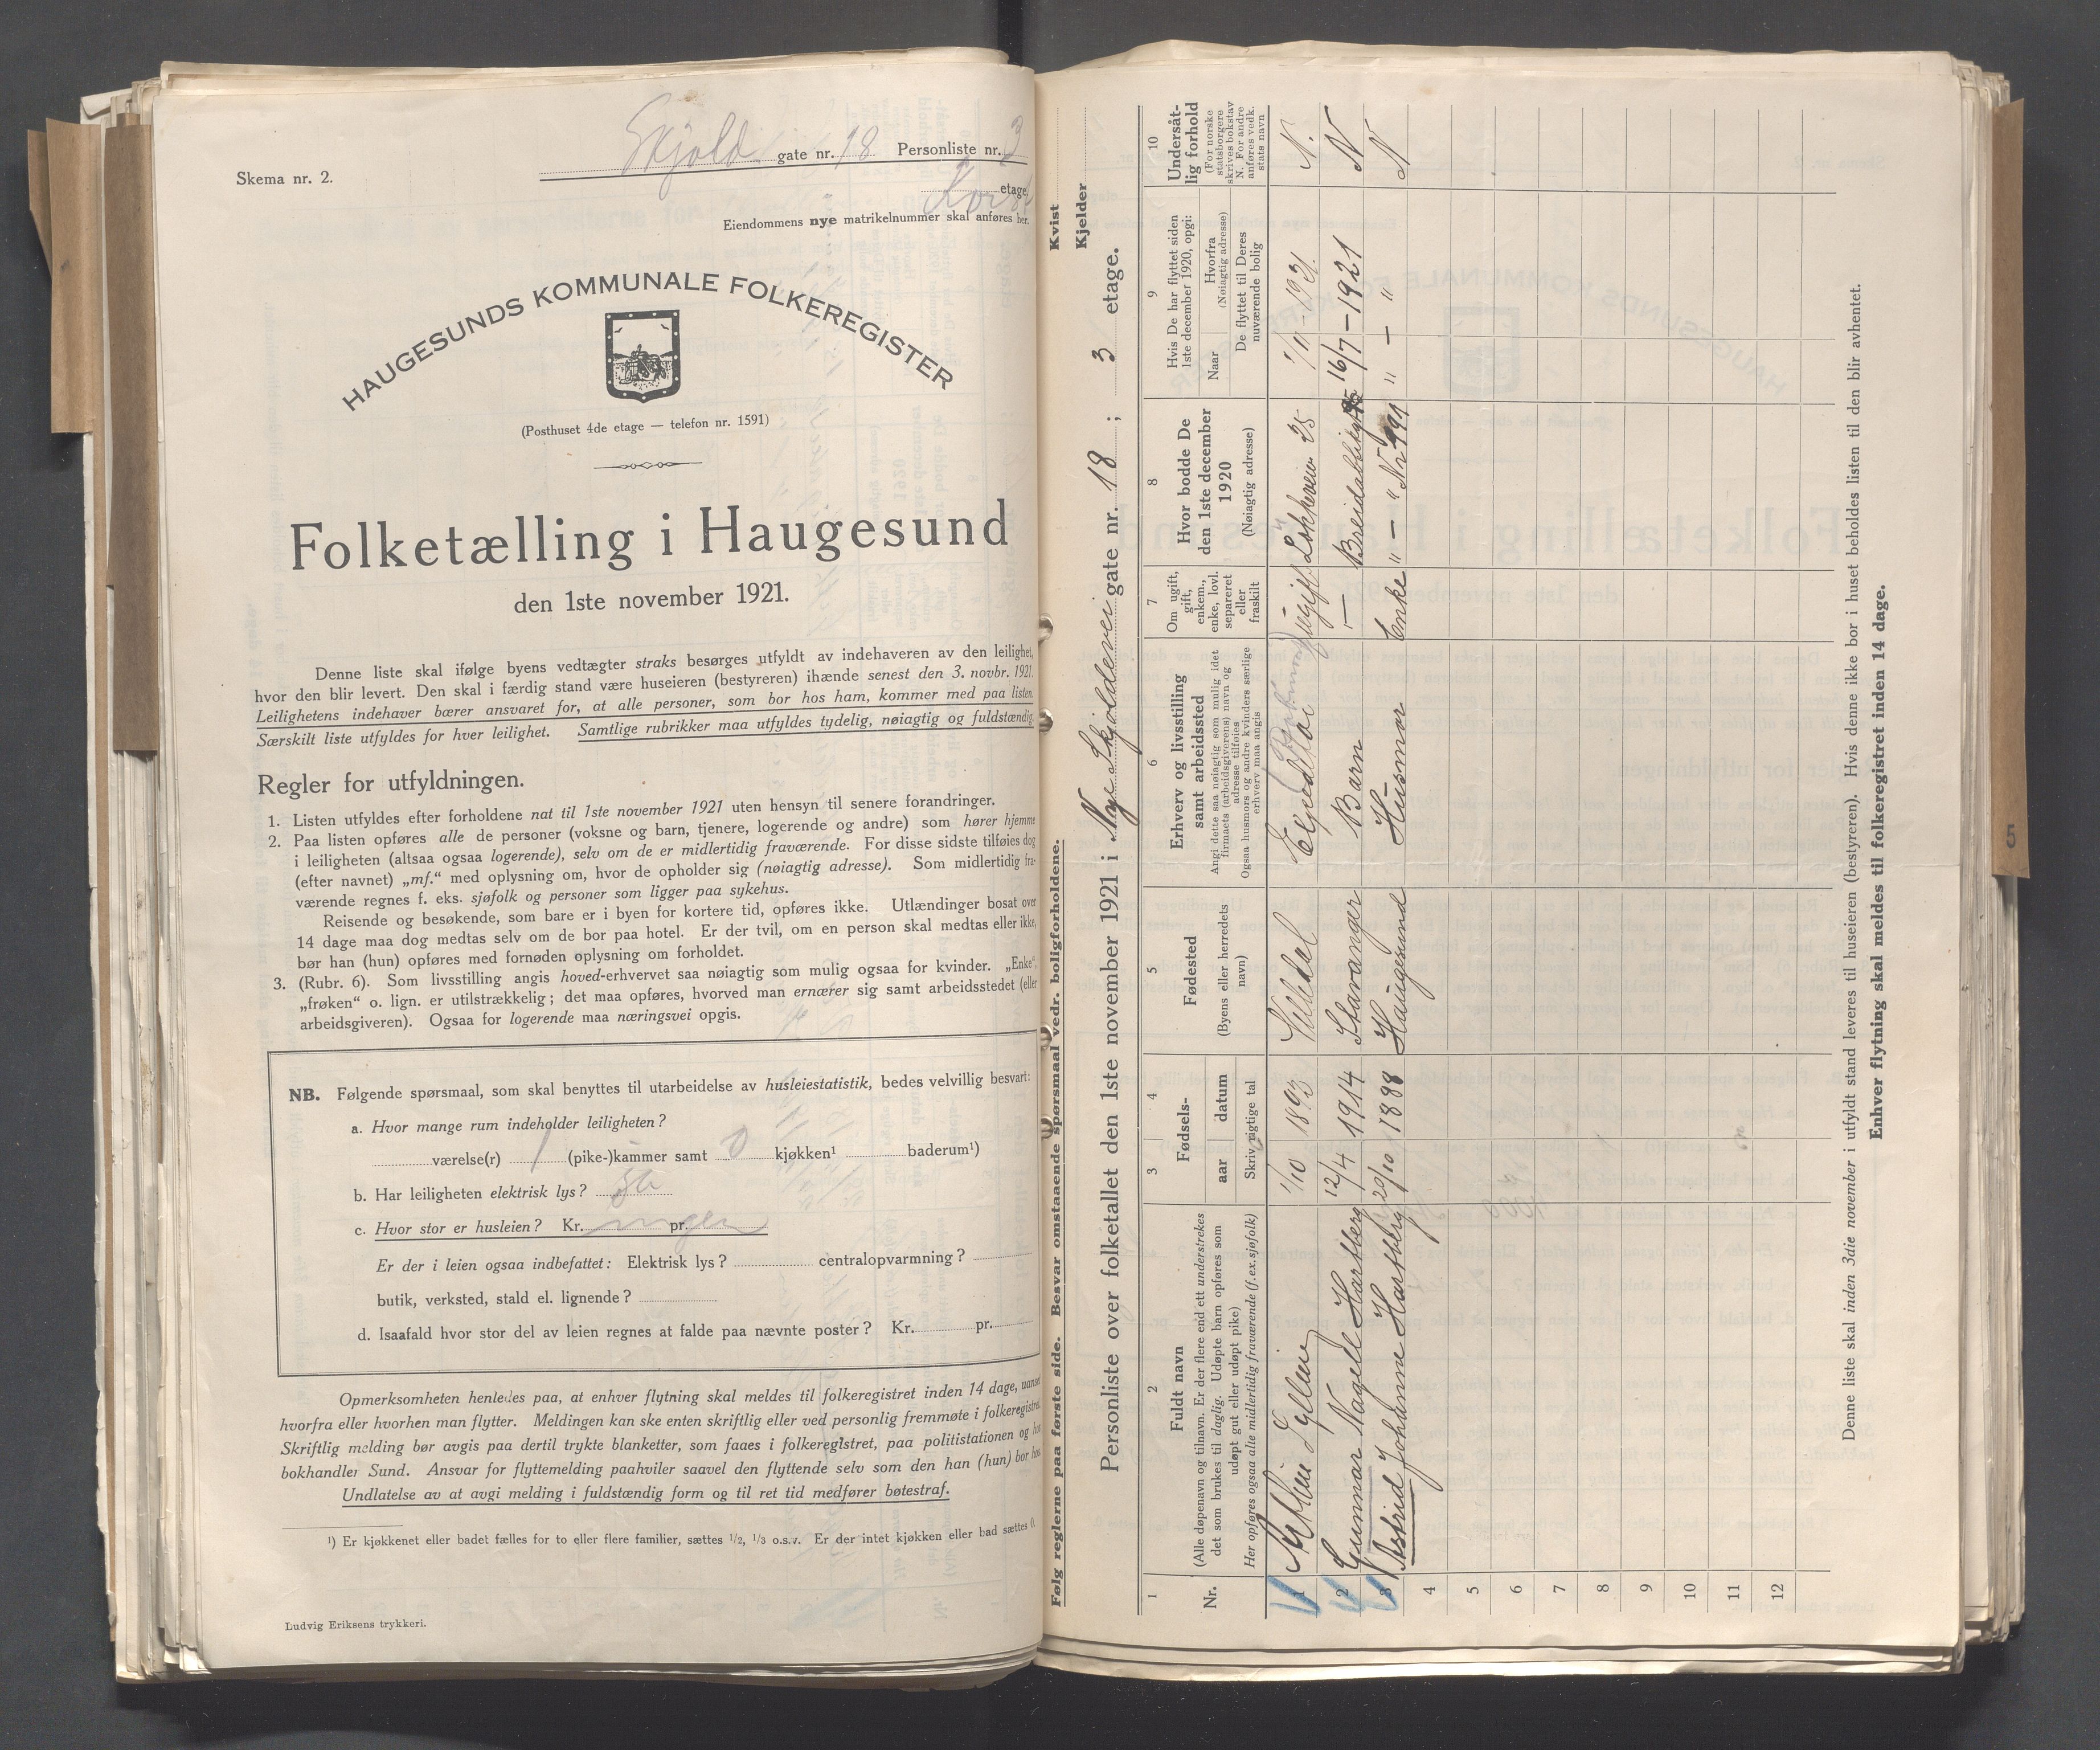 Skjold gate nr. 18 Personliste nr. 3
Skema nr. 2.
Kvist etage.
Eiendommens nye matrikelnummer skal anføres her.
HAUGESUNDS KOMMUNALE FOLKEREGISTER
(Posthuset 4de etage — telefon nr. 1591)
Folketælling i Haugesund
den 1ste november 1921.
Denne liste skal ifølge byens vedtægter straks besørges utfyldt av indehaveren av den leilighet,
hvor den blir levert. Den skal i færdig stand være huseieren (bestyreren) ihænde senest den 3. novbr. 1921.
Leilighetens indehaver bærer ansvaret for, at alle personer, som bor hos ham, kommer med paa listen.
Særskilt liste utfyldes for hver leilighet. Samtlige rubrikker maa utfyldes tydelig, nøiagtig og fuldstændig.
Regler for utfyldningen.
1. Listen utfyldes efter forholdene nat til 1ste november 1921 uten hensyn til senere forandringer.
2. Paa listen opføres alle de personer (voksne og barn, tjenere, logerende og andre) som hører hjemme
i leiligheten (altsaa ogsaa logerende), selv om de er midlertidig fraværende. For disse sidste tilføies dog
(efter navnet) „mf.“ med oplysning om, hvor de opholder sig (nøiagtig adresse). Som midlertidig fra-
værende regnes f. eks. sjøfolk og personer som ligger paa sykehus.
Reisende og besøkende, som bare er i byen for kortere tid, opføres ikke. Utlændinger bosat over
14 dage maa dog medtas selv om de bor paa hotel. Er der tvil, om en person skal medtas eller ikke,
bør han (hun) opføres med fornøden oplysning om forholdet.
3. (Rubr. 6). Som livsstilling angis hoved-erhvervet saa nøiagtig som mulig ogsaa for kvinder. „Enke“,
„frøken“ o. lign. er utilstrækkelig; det maa opføres, hvorved man ernærer sig samt arbeidsstedet (eller
arbeidsgiveren). Ogsaa for logerende maa næringsvei opgis.
NB. Følgende spørsmaal, som skal benyttes til utarbeidelse av husleiestatistik, bedes velvillig besvart:
a. Hvor mange rum indeholder leiligheten?
værelse(r) 1 (pike-)kammer samt 0 kjøkken¹ baderum¹)
b. Har leiligheten elektrisk lys? ja
c. Hvor stor er husleien? Kr. ingen pr.
Er der i leien ogsaa indbefattet: Elektrisk lys? centralopvarmning?
butik, verksted, stald el. lignende?
d. Isaafald hvor stor del av leien regnes at falde paa nævnte poster? Kr. pr.
Opmerksomheten henledes paa, at enhver flytning skal meldes til folkeregistret inden 14 dage, uanset
hvorfra eller hvorhen man flytter. Meldingen kan ske enten skriftlig eller ved personlig fremmøte i folkeregistret.
Skriftlig melding bør avgis paa dertil trykte blanketter, som faaes i folkeregistret, paa politistationen og hos
bokhandler Sund. Ansvar for flyttemelding paahviler saavel den flyttende selv som den han (hun) bor hos.
Undlatelse av at avgi melding i fuldstændig form og til ret tid medfører bøtestraf.
¹) Er kjøkkenet eller badet fælles for to eller flere familier, sættes 1/2, 1/3 o.s.v. Er der intet kjøkken eller bad sættes 0.
Ludvig Eriksens trykkeri.
Følg reglerne paa første side. Besvar omstaaende spørsmaal vedr. boligforholdene.
Kvist
Kjelder
Personliste over folketallet den 1ste november 1921 i Nye Skjoldevei gate nr. 18; 3 etage.
1 2 3 4 5 6 7 8 9 10
Nr.
Fuldt navn
(Alle døpenavn og tilnavn. Er der flere end ett understrekes
det som brukes til daglig. Udøpte barn opføres som
udøpt gut eller udøpt pike)
Her opføres ogsaa alle midlertidig fraværende (f.ex.sjøfolk)
Fødsels-
aar datum
Skriv rigtige tal
Fødested
(Byens eller herredets
navn)
Erhverv og livsstilling
samt arbeidssted
Angi dette saa nøiagtig som mulig idet
firmaets (arbeidsgiverens) navn og
adresse tilføies
Ogsaa husmors og andre kvinders særlige
erhverv maa angis
Om ugift,
gift,
enkem.,
enke, lovl.
separeret
eller
fraskilt
Hvor bodde De
den 1ste december
1920
(Nøiagtig adresse)
Hvis De har flyttet siden
1ste december 1920, opgi:
Naar
Hvorfra
(Nøiagtig adresse)
De flyttet til Deres
nuværende bolig
Undersåt-
lig forhold
(For norske
statsborgere
skrives bokstav
N. For andre
anføres vedk.
stats navn
1 1/10 1893 ugift Løkkeveien 25 1/11-1921. N.
2 Gunnar Nagell Hartberg 12/4 1914 Stavanger Barn — Breidablikgt 16/7-1921 N
3 Astrid Johanne Hartberg 20/10 1888 Haugesund Husmor Enke " — " Nr 191 " — " N
4
5
6
7
8
9
10
11
12
Denne liste skal inden 3die november i utfyldt stand leveres til huseieren (bestyreren). Hvis denne ikke bor i huset beholdes listen til den blir avhentet.
Enhver flytning skal meldes til folkeregistret inden 14 dage.
5